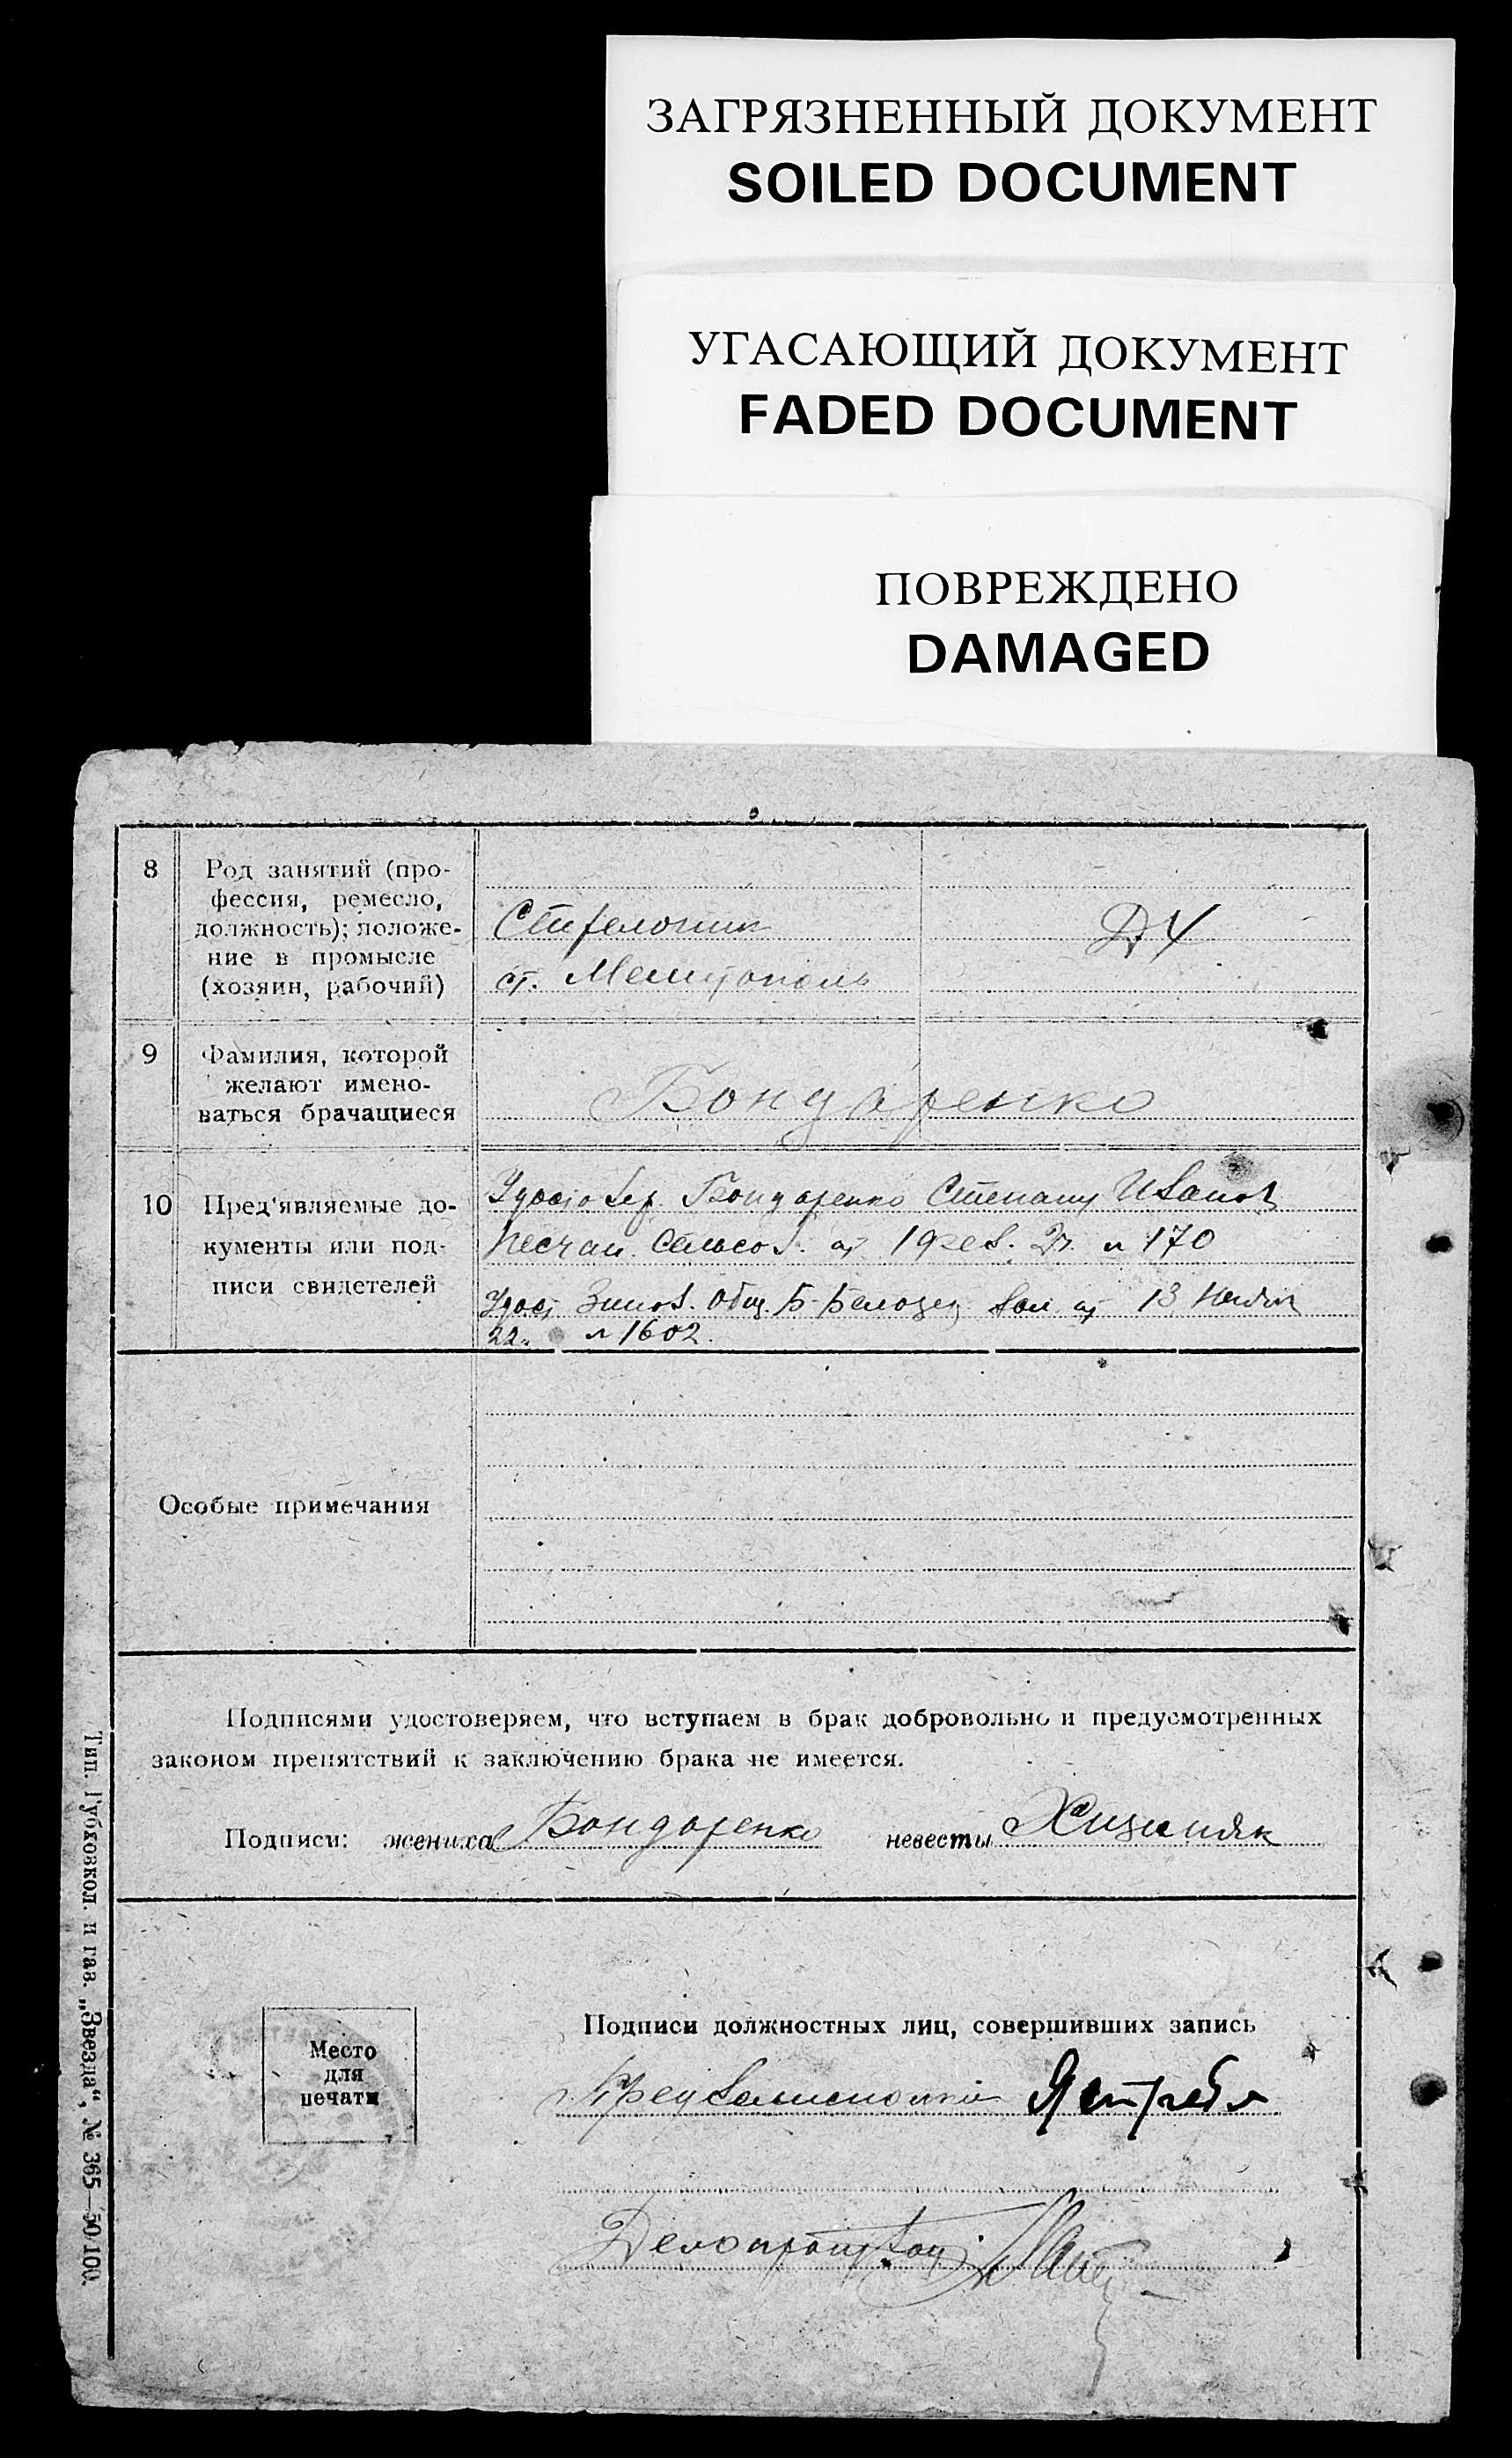 ЗАГРЯЗНЕННЫЙ ДОКУМЕНТ
SOILED DOCUMENT
УГАСАЮЩИЙ ДОКУМЕНТ
FADED DOCUMENT
ПОВРЕЖДЕНО
DAMAGED
8
Род занятий (про-
фессия, ремесло,
должность); положе-
ние в промысле
(хозяин, рабочий)
Стрелочник
ст. Мелитополь
ДХ
9
Фамилия, которой
желают имено-
ваться брачащиеся
Бондаренко
10
Пред'являемые до-
кументы или под-
писи свидетелей
Бондаренко Степану Иванов
Песчан. Сельсов. от 19 фев. 2 г. № 170
Удост Общ. Б-Белозер вол от 13
22 г. № 1602.
Особые примечания
Подписями удостоверяем, что вступаем в брак добровольно и предусмотренных
законом препятствий к заключению брака не имеется.
Подписи: жениха Бондаренко невесты Хижняк
Место
для
печати
Подписи должностных лиц, совершивших запись
Предволисполко
Делопроизвод
Тип. Губховкол. и газ. „Звезда“, № 365—50/100.